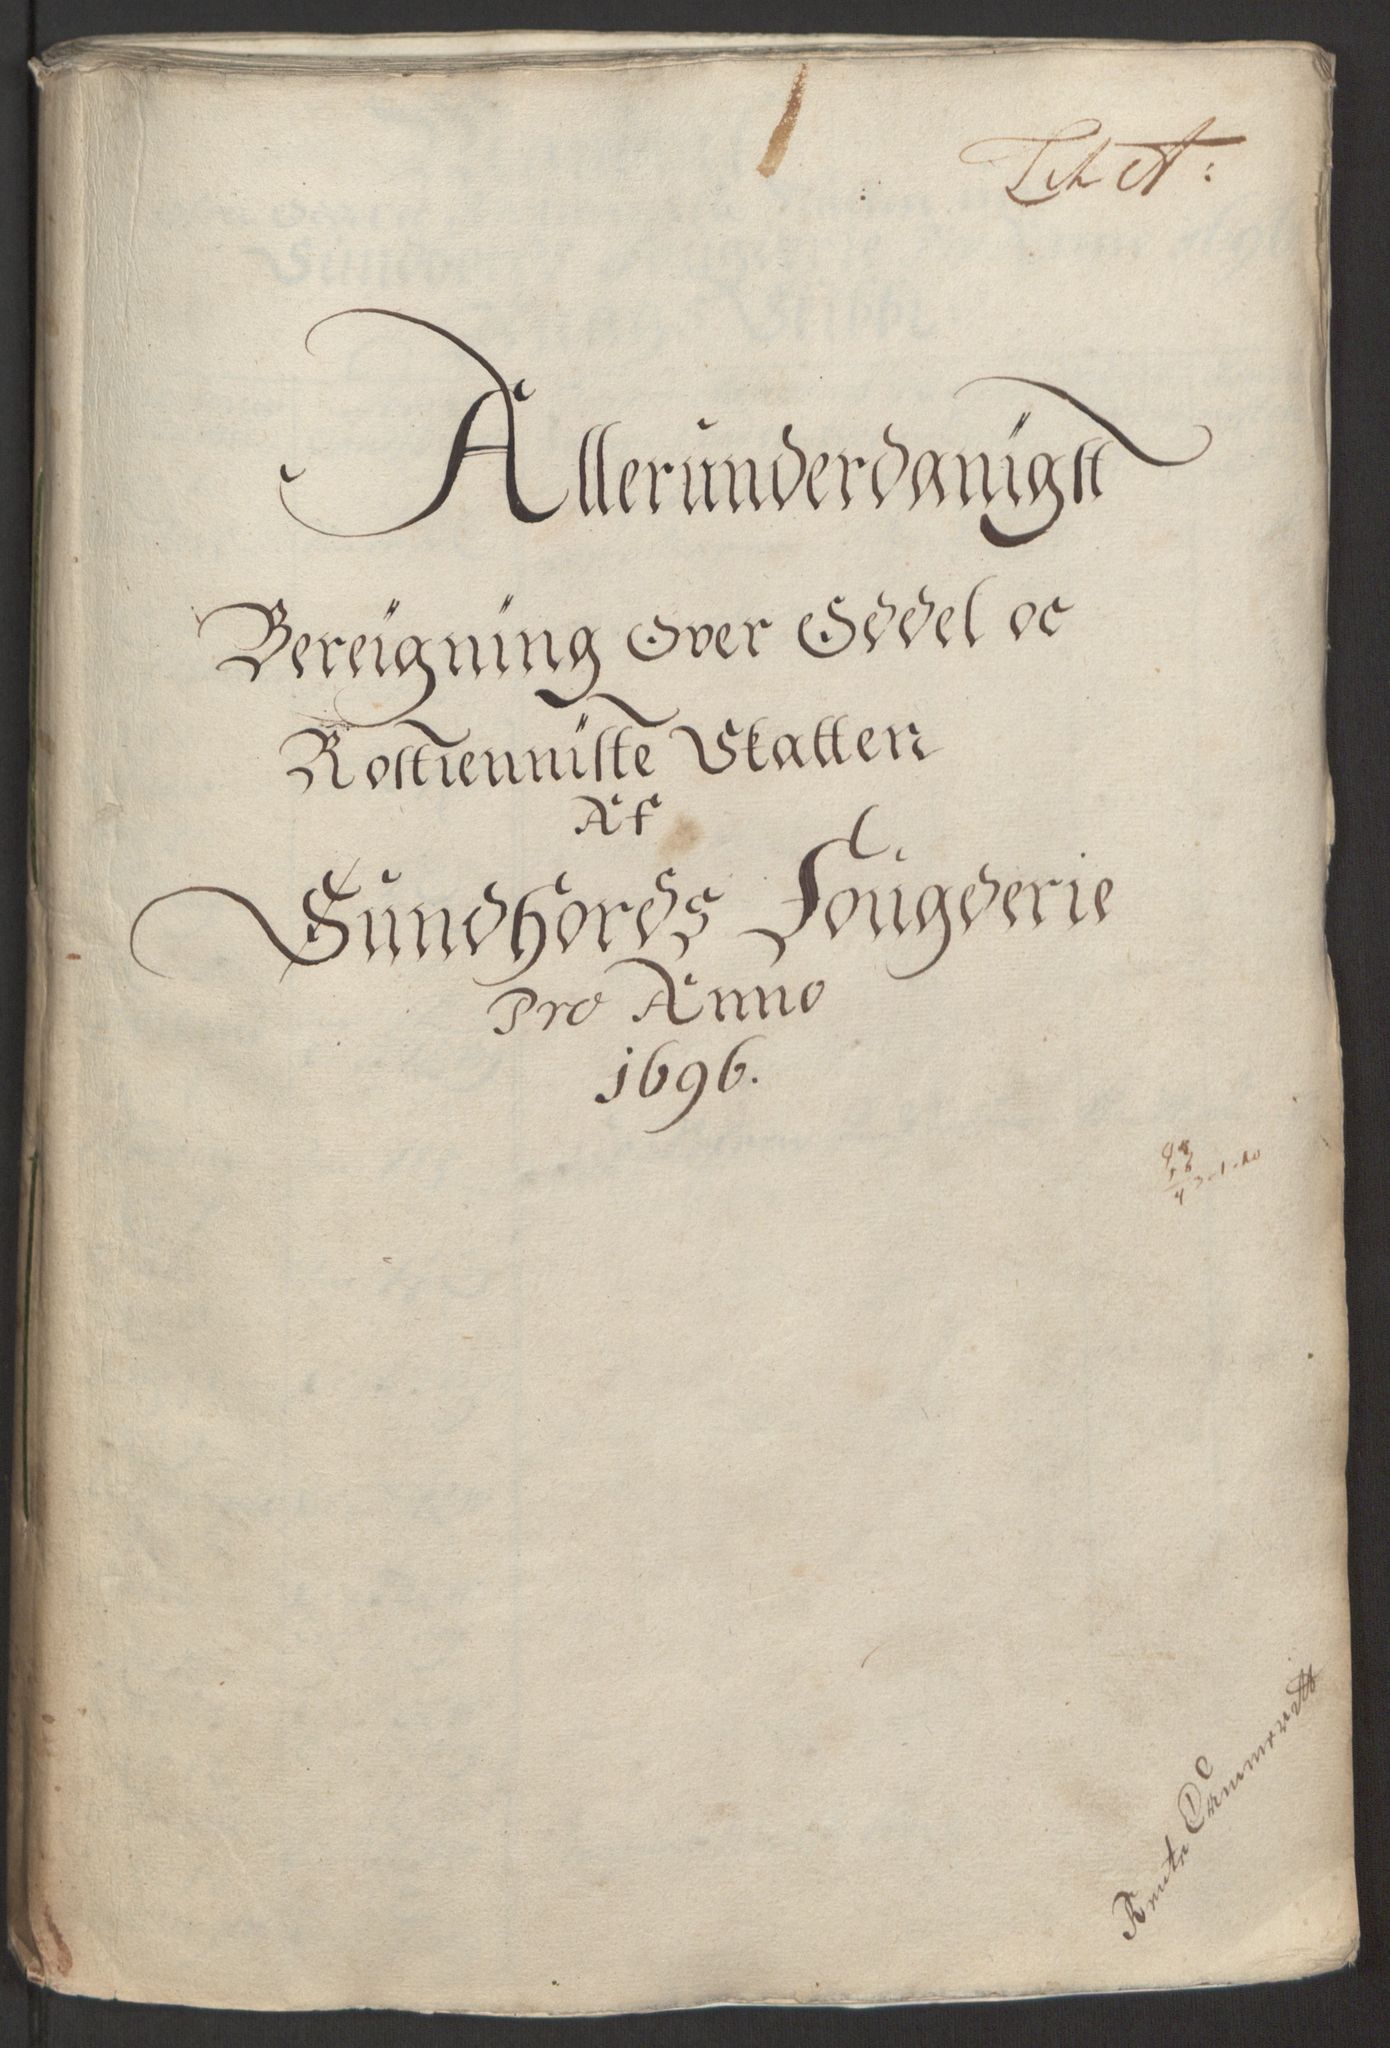 Lit A:
Alleründerdanigst
Bereigning Over Oddel oc
Rostienniste Skatten
Af
Sündhords Fougderie
Pro Anno
1696.
Rente Cammerett